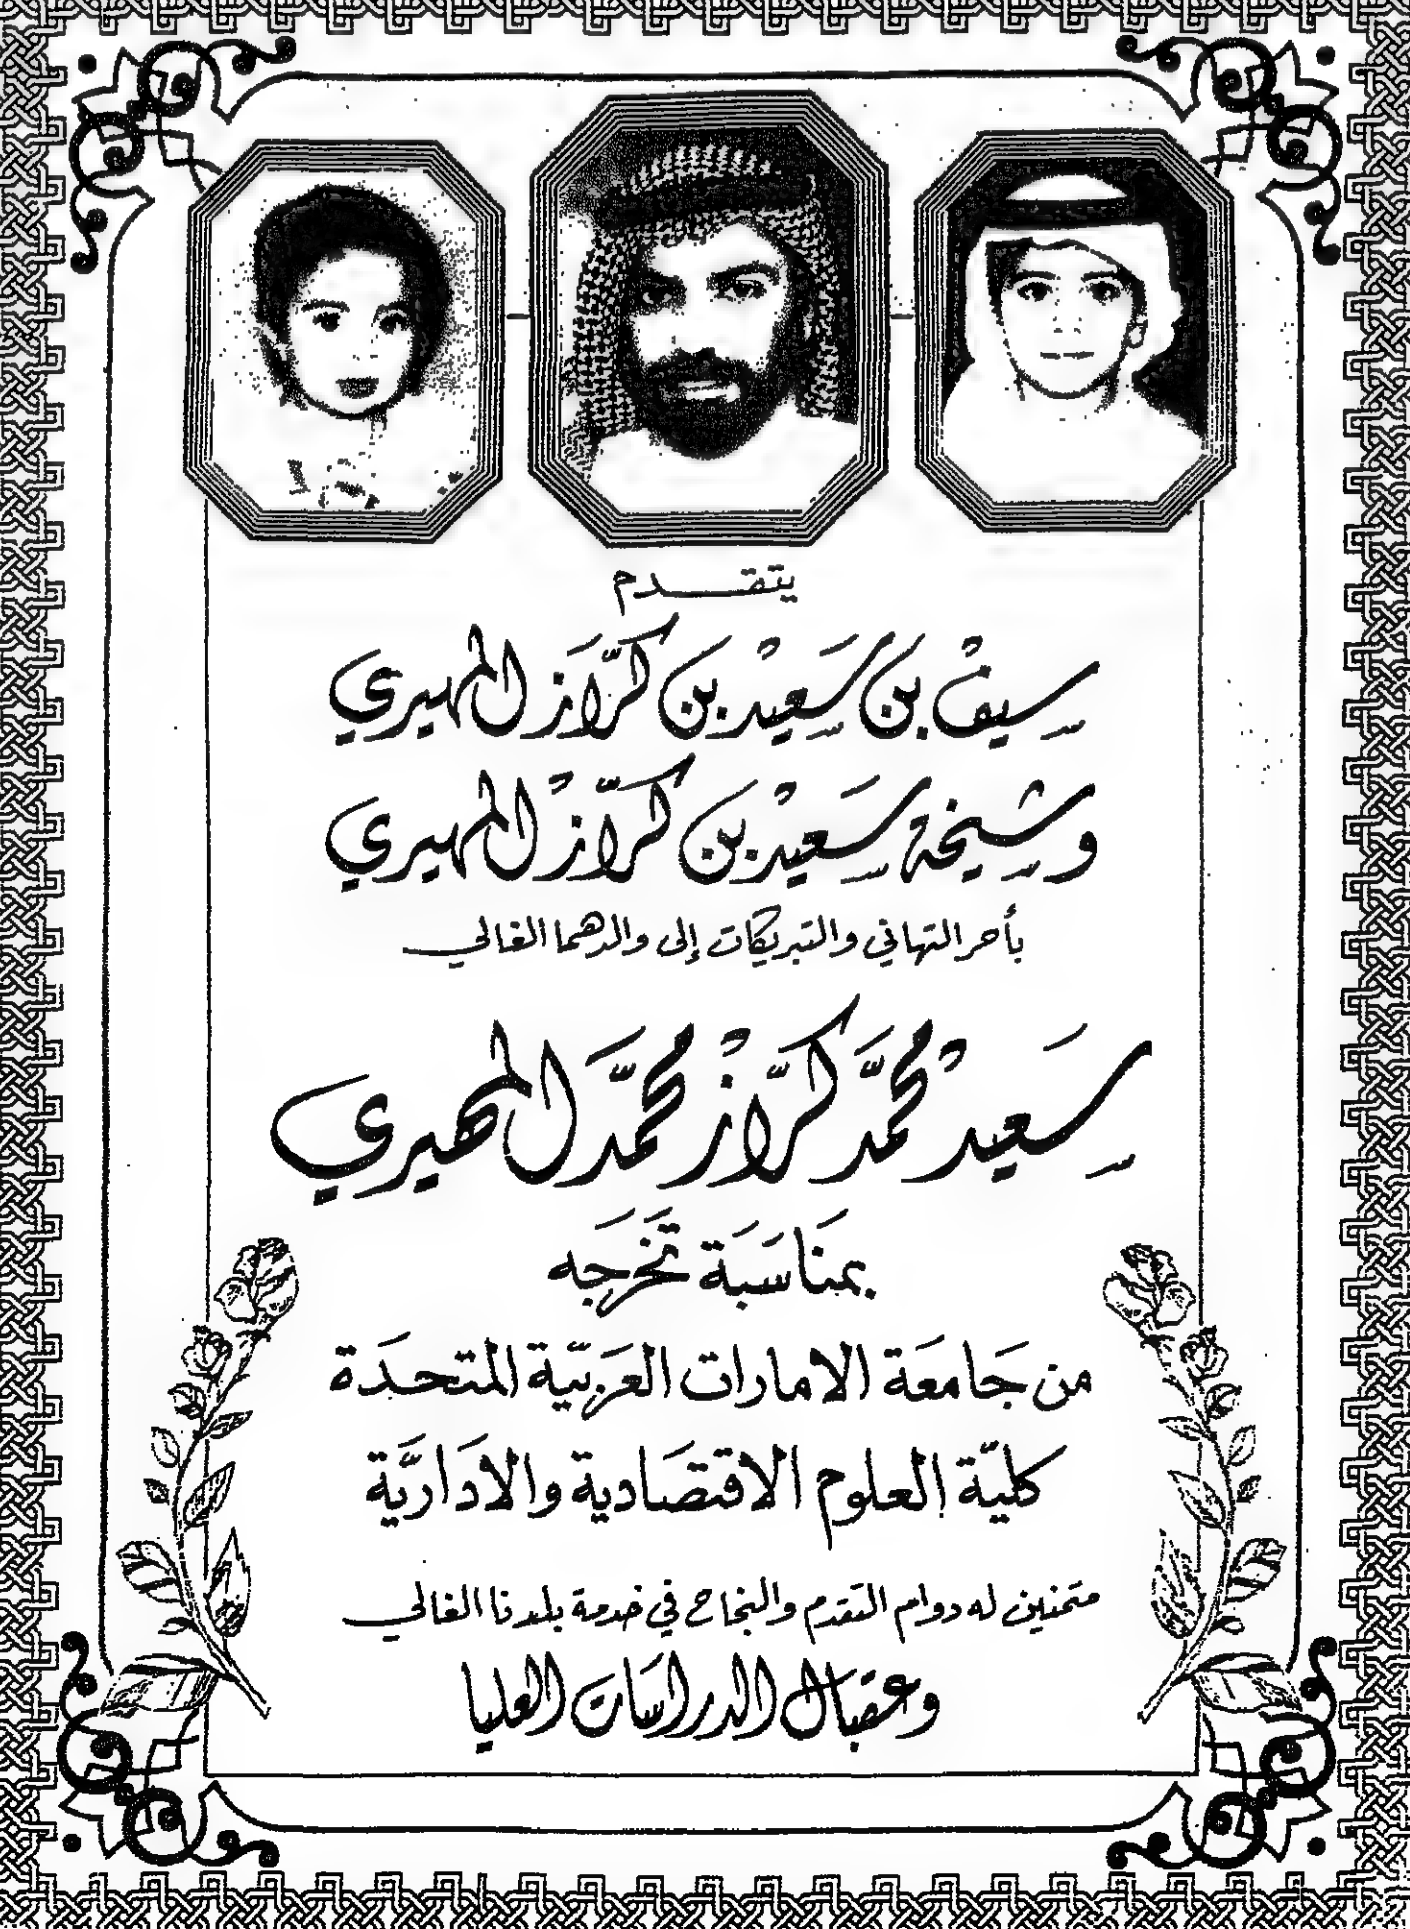 يتقدم
سيف بن سعيد بن كرّاز المهيري
وشيخة سعيد بن كرّاز المهيري
بأحر التهاني والتبريكات إلى والدهما الغالي
سَعيد محمَّد كرَّاز محمَّد المهيري
بمنَاسَبَة تخَرجَه
من جَامعَة الامارات العَربيّة المتحدَة
كليّة العلوم الاقتصَادية والادَاريَّة
متمنين له دوام التقدم والنجاح في خدمة بلدنا الغالي
وعقبال الدراسَات العليا